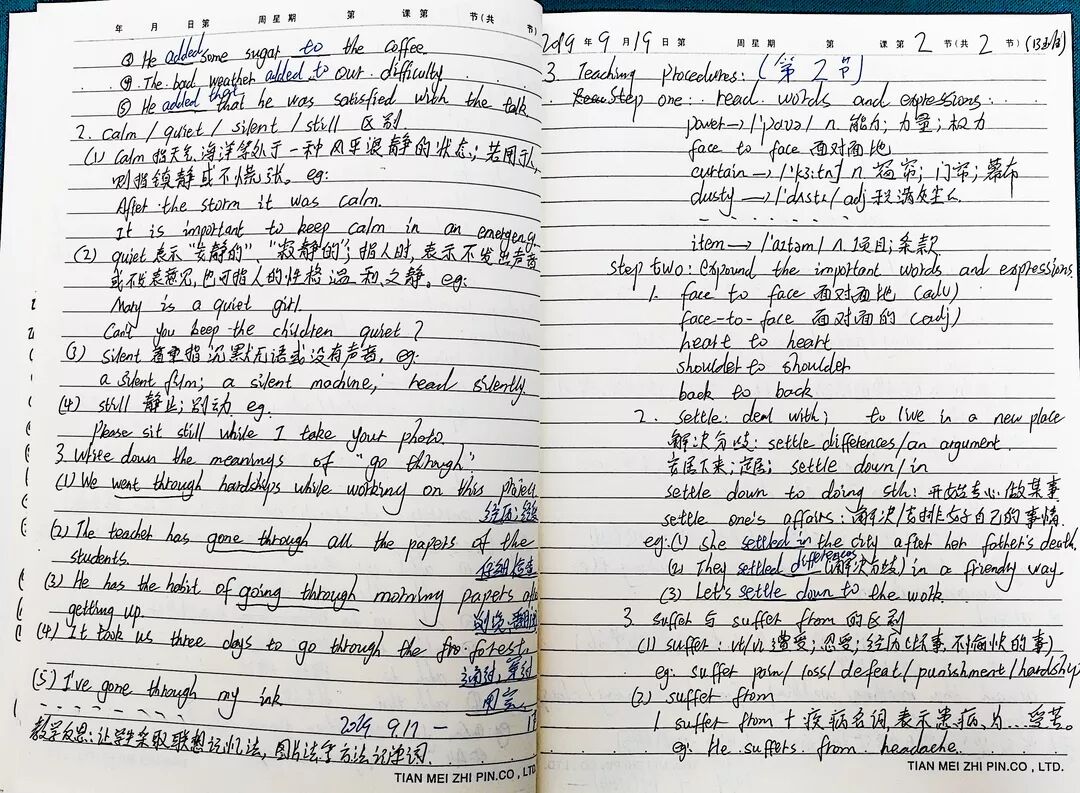 年 月 日第 周星期 第 课第 节(共 节)
③ He added some sugar to the coffee
④ The bad weather added to our difficulty
⑤ He added that he was satisfied with the talk
2. calm / quiet / silent / still 区别
(1) calm 指天气,海洋等处于一种风平浪静的状态;若用于人,
则指镇静或不慌张。eg:
After the storm it was calm.
It is important to keep calm in an emergency
(2) quiet 表示"安静的"、"寂静的";指人时,表示不发出声音
或不发表意见,也可指人的性格温和,文静。eg:
Mary is a quiet girl.
Can't you keep the children quiet ?
(3) silent 着重指沉默无语或没有声音。eg:
a silent film; a silent machine; read silently.
(4) still 静止;别动 eg.
Please sit still while I take your photo
3. Write down the meanings of "go through".
(1) We went through hardships while working on this project
经历;经受
(2) The teacher has gone through all the papers of the
students. 仔细检查
(3) He has the habit of going through morning papers after
getting up. 浏览,翻阅
(4) It took us three days to go through the forest.
通过,穿过
(5) I've gone through my ink 用完
2019 9.17 —
教学反思:让学生采取联想记忆法,图片法等方法记单词.
TIAN MEI ZHI PIN.CO , LTD.
2019年9月19日第 周星期 第 课第2节(共2节)
3. Teaching procedures: (第2节)
Step one: read words and expressions:
power→/'paʊə/ n. 能力;力量;权力
face to face 面对面地
curtain→/'kɜ:tn/ n 窗帘;门帘;幕布
dusty→/'dʌstɪ/ adj 积满灰尘的
item→/'aɪtəm/ n 项目;条款
step two: expound the important words and expressions
1. face to face 面对面地 (adv)
face-to-face 面对面的 (adj)
heart to heart
shoulder to shoulder
back to back
2. settle: deal with; to live in a new place
解决分歧: settle differences/an argument
安居下来;定居; settle down/in
settle down to doing sth: 开始专心做某事
settle one's affairs: 解决/安排好自己的事情
eg:(1) She settled in the city after her father's death.
(2) They settled differences (解决分歧) in a friendly way
(3) Let's settle down to the work.
3. suffer 与 suffer from 的区别
(1) suffer : vt/vi 遭受;忍受;经历(坏事,不愉快的事)
eg: suffer pain/ loss/ defeat / punishment / hardship
(2) suffer from
1. suffer from + 疾病名词,表示患病,为…受苦.
eg: He suffers from headache.
TIAN MEI ZHI PIN.CO , LTD.